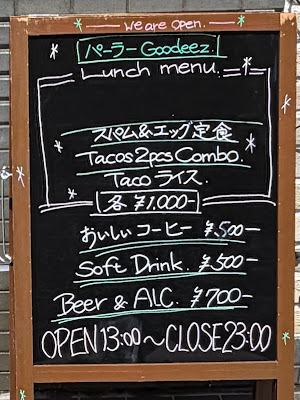 We are OPen.
パーラー Goodeez.
Lunch menu.
スパム&エッグ定食
Tacos 2pcs Combo.
Taco ライス.
各 ¥1,000-
おいしい コーヒー ¥,500-
Soft Drink. ¥,500-
Beer & ALC. ¥,700-
OPEN 13:00〜CLOSE 23:00